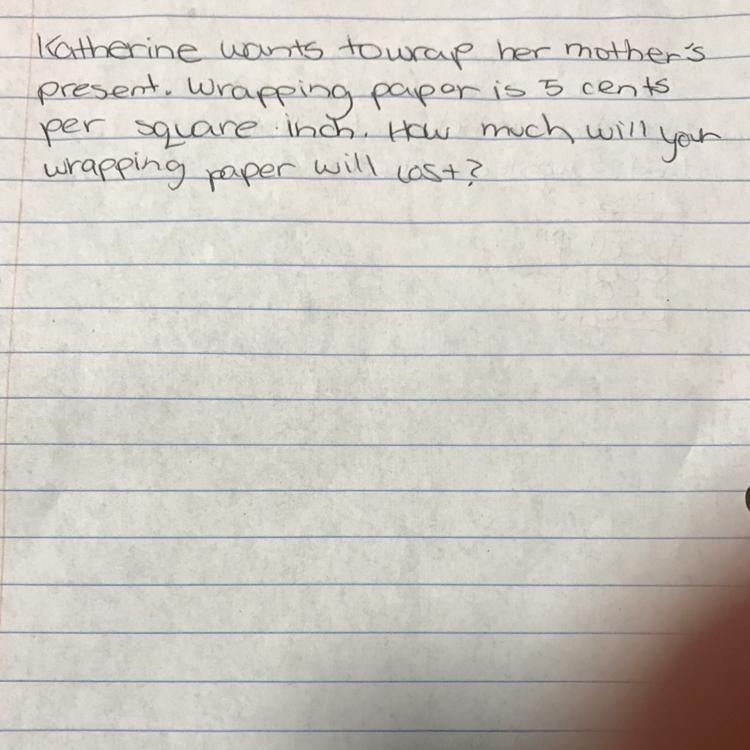 Katherine wants to wrap her mother's
present. Wrapping paper is 5 cents
per square inch. How much will your
wrapping paper will cost?